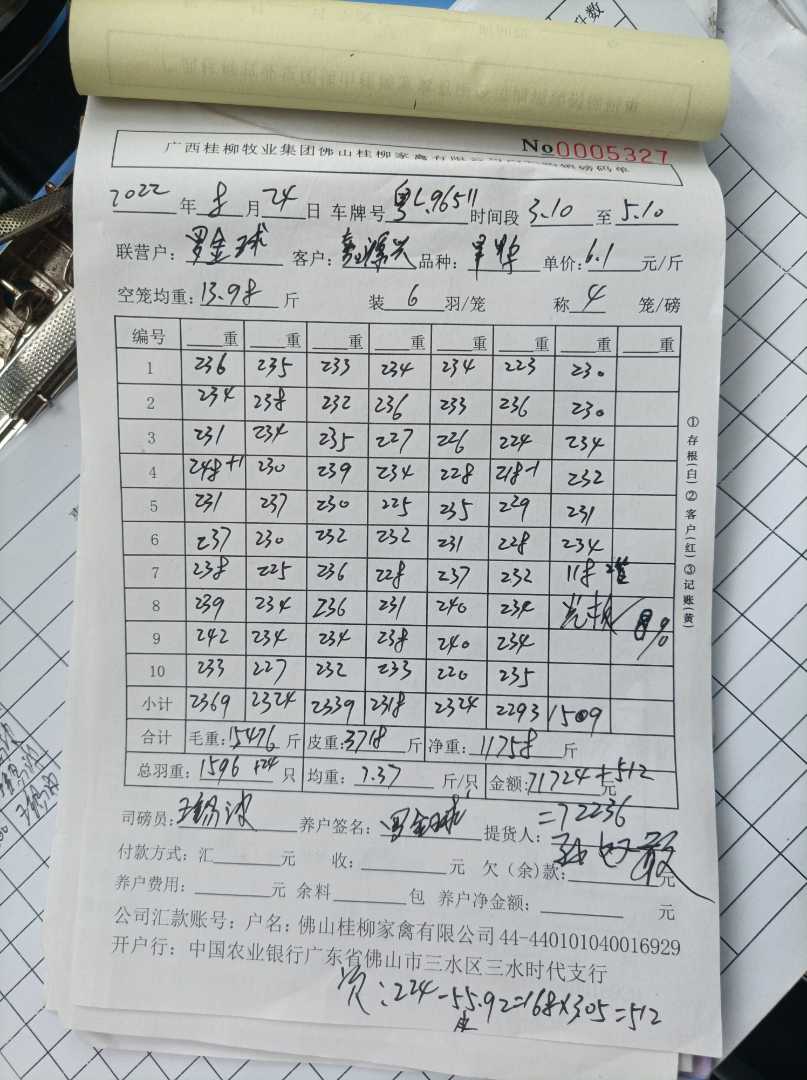 No 0005327
广西桂柳牧业集团佛山桂柳家禽有限公司
2022 年 8 月 24 日 车牌号 粤L.96511 时间段 3.10 至 5.10
联营户: 罗金球 客户: 源兴 品种: 单价: 6.1 元/斤
空笼均重: 13.98 斤 装 6 羽/笼 称 4 笼/磅
编号 重 重 重 重 重 重 重 重
1 236 235 233 234 234 223 230
2 234 238 232 236 233 236 230
3 231 234 235 227 226 224 234
4 248+1 230 239 234 228 218-1 232
5 231 237 230 225 235 229 231
6 237 230 232 232 231 228 234
7 238 225 236 228 237 232 118
8 239 234 236 231 240 234 8%
9 242 234 234 238 240 234
10 233 227 232 233 220 235
小计 2369 2324 2339 2318 2324 2293 1509
合计 毛重: 15476 斤 皮重: 3718 斤 净重: 11758 斤
总羽重: 1596 +24 只 均重: 7.37 斤/只 金额: 71724 + 512 元
=72236
司磅员: 养户签名: 罗金球 提货人:
付款方式: 汇 元 收: 元 欠(余)款: 元
养户费用: 元 余料 包 养户净金额: 元
公司汇款账号: 户名: 佛山桂柳家禽有限公司 44-440101040016929
开户行: 中国农业银行广东省佛山市三水区三水时代支行
次: 224-55.92=168×305=512
皮
①存根(白)②客户(红)③记账(黄)
件数